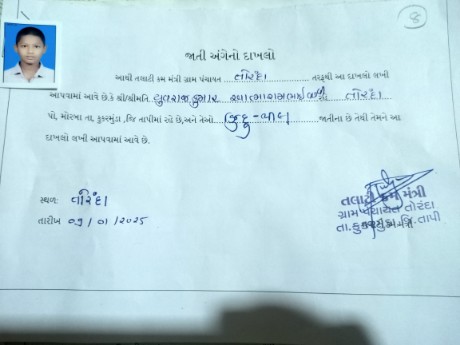 8
જાતી અંગેનો દાખલો
આથી તલાટી કમ મંત્રી ગ્રામ પંચાયત તોરંદા તરફથી આ દાખલો લખી
આપવામાં આવે છે.કે શ્રી/શ્રીમતિ યુવરાજકુમાર આત્મારામભાઈ વળવી તોરંદા
પો, મોરંબા તા, કુકરમુંડા, જિ તાપીમાં રહે છે,અને તેઓ હિન્દુ-
જાતીના છે તેથી તેમને આ
દાખલો લખી આપવામાં આવે છે.
સ્થળ: તોરંદા
તારીખ 09/01/2025
તલાટી કમ મંત્રી
ગ્રામપંચાયત તોરંદા
તા.કુકરમુંડા જિ.તાપી